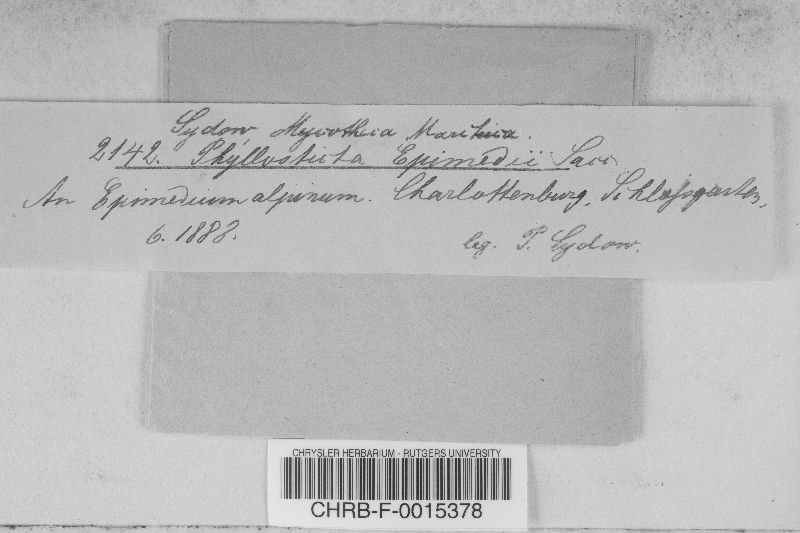 Sydow, Mycotheca Marchica.
2142. Phyllosticta Epimedii Sacc.
An Epimedium alpinum. Charlottenburg, Schlossgarten,
6. 1888.
leg. P. Sydow.
CHRYSLER HERBARIUM - RUTGERS UNIVERSITY
CHRB-F-0015378